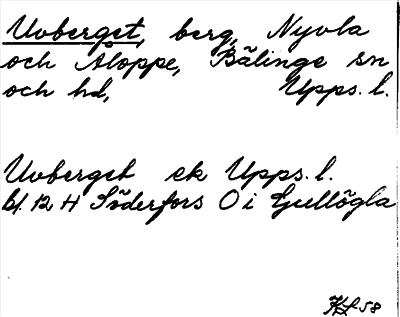 Uvberget, berg, Nyvla
och Åloppe, Bälinge sn
och hd, Upps. l.
Uvberget ek Upps. l.
bl. 12 H Söderfors O i Gullögla
KL 58